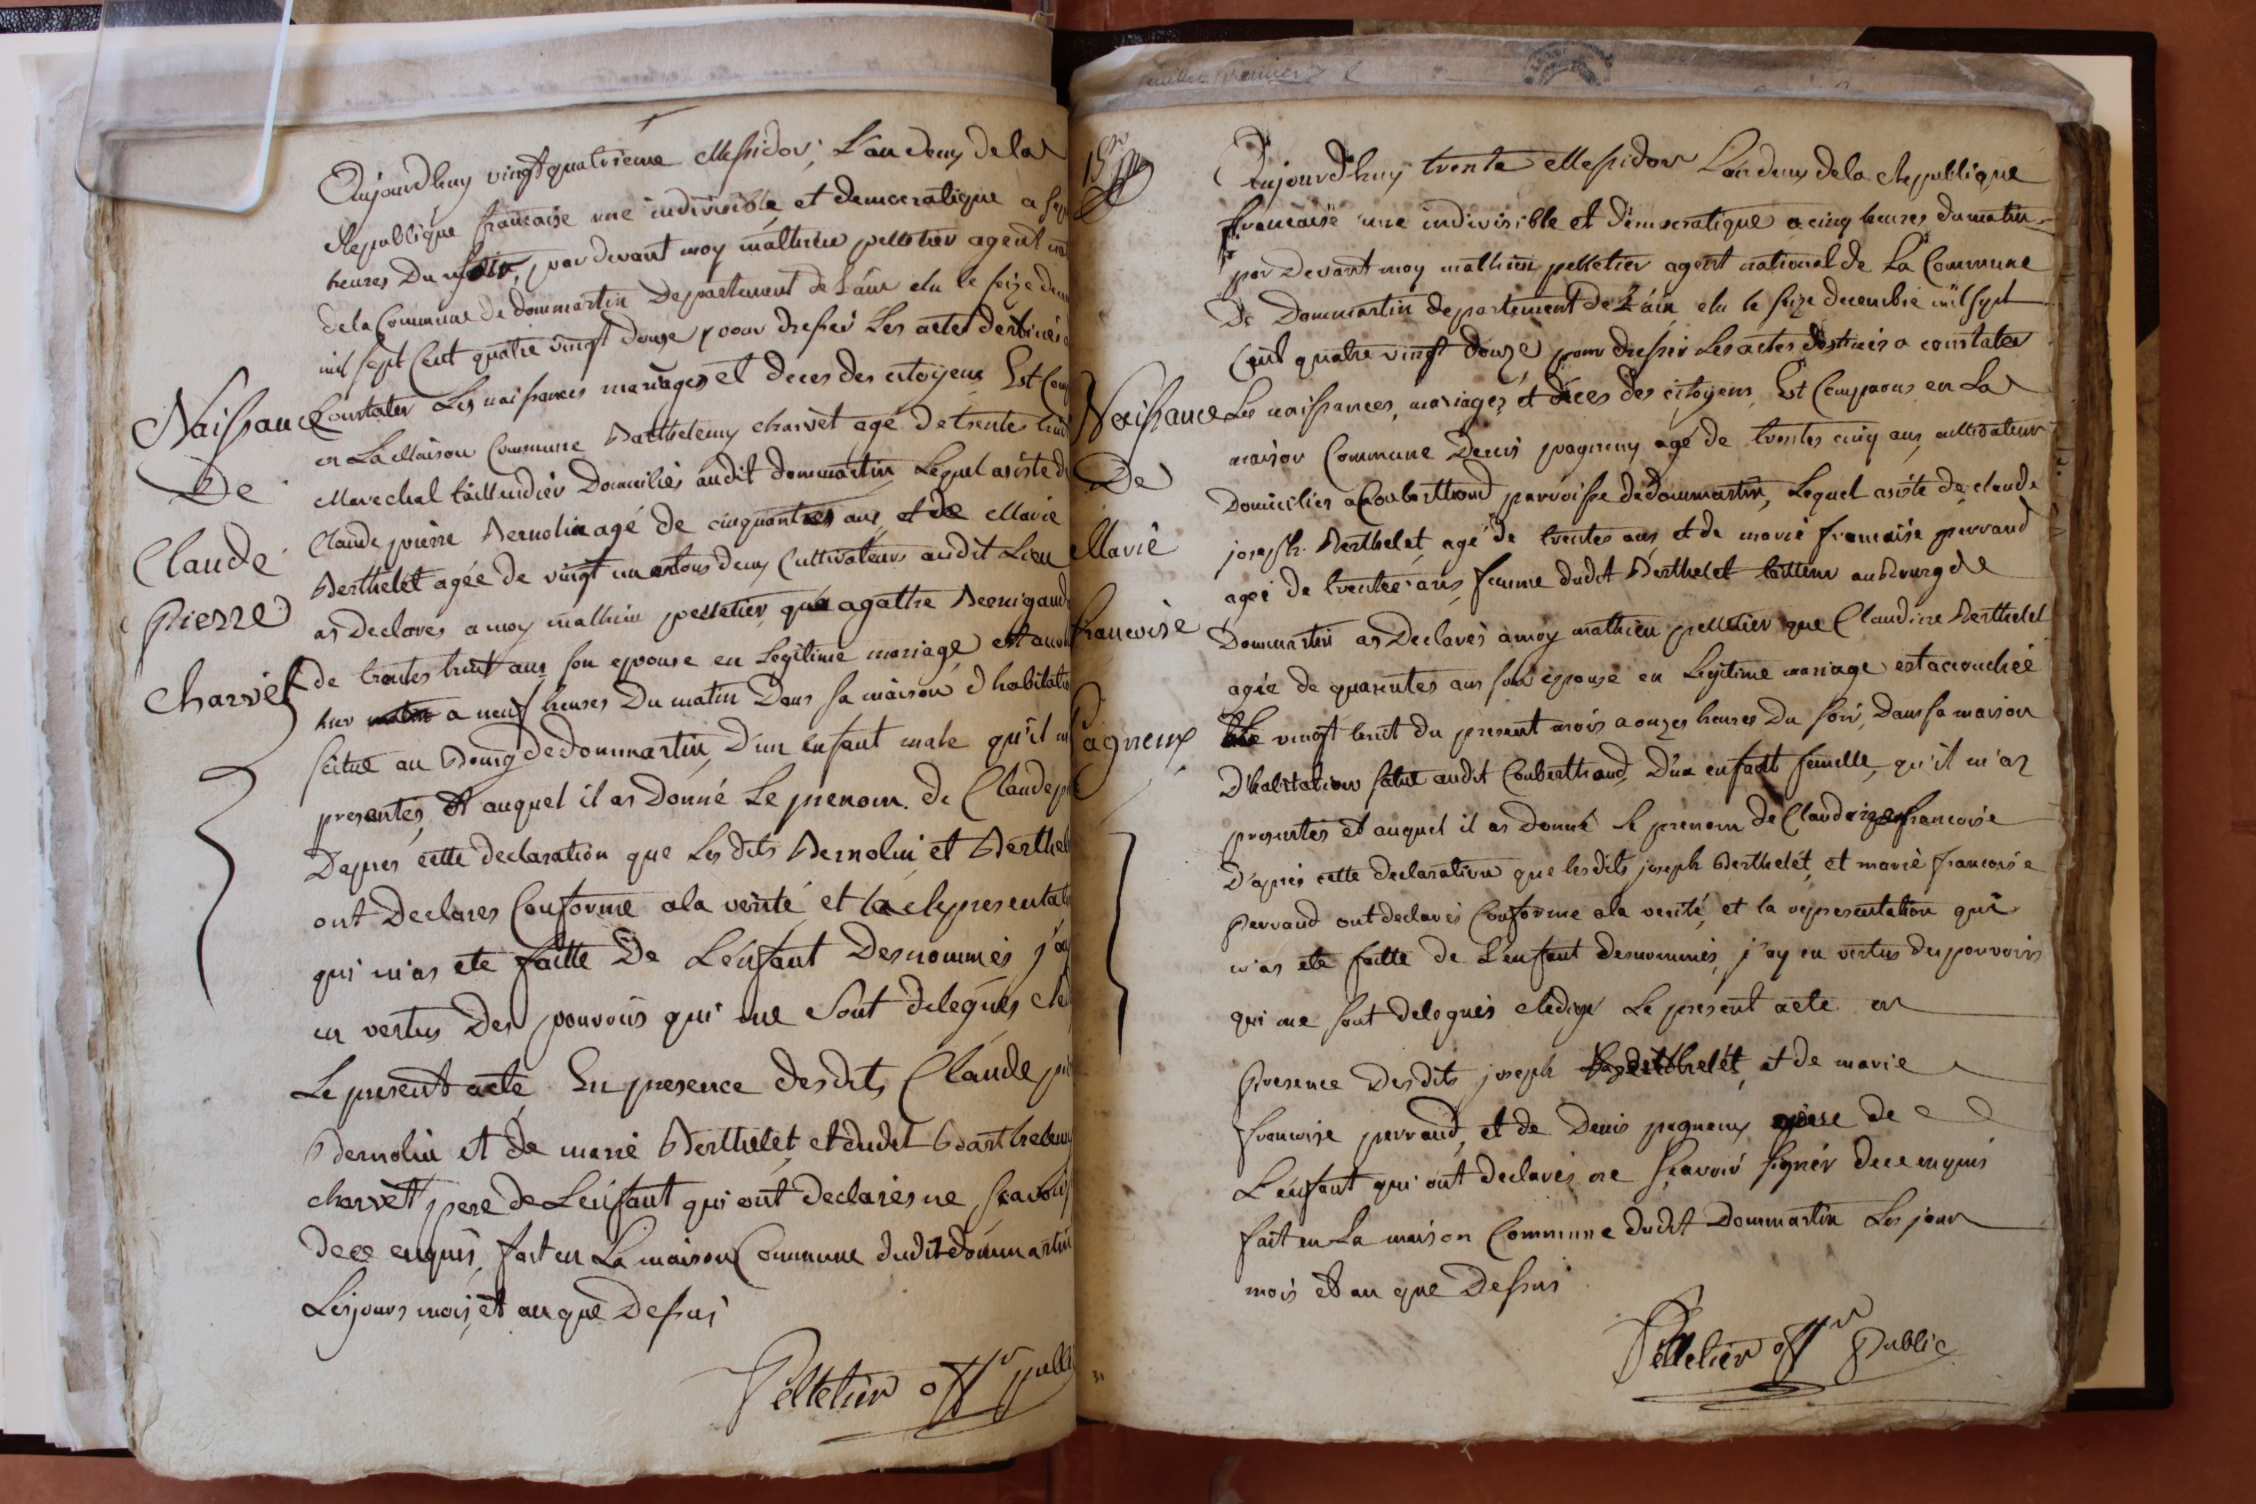 Aujourdhuy vingt quatrieme Messidor, L'an deux dela
Republique francaise une indivisible et democratique a
heures Du soir, par devant moy mathieu pelletier agent
dela Commune de dommartin Departement de L'ain elu le seize
mil sept Cent quatre vingt douze pour dresser Les actes destinés
Constater Les naissances mariages et deces des citoyens Est
en La Maison Commune Barthelemy charvet agé de trentes
Marechal taillendier Domiciliés audit dommartin Lequel asisté
Claude pierre Bernolin agé de cinquantes ans et de Marie
Berthelet agée de vingt un ans tous deux Cultivateurs audit Lieu
as Declarés a moy mathieu pelletier que agathe
de trentes huit ans son epouse en Legitime mariage est
hier a neuf heures Du matin Dans sa maison d'habitation
scitue au Bourg de dommartin, D'un enfant male qu'il
presentés, et auquel il as Donné Le prenom de Claude
Dapres cette declaration que Les dits Bernolin et
ont Declares Conforme ala verité et la
qui m'as ete faitte De L'enfant Denommés j'ay
en vertus Des pouvoirs qui me Sont delegués
Le present acte En presence desdits Claude
Bernolin et de marie Berthelet, et dudit Barthelemy
charvet pere de L'enfant qui ont declarés ne scavoir
dece enquis, fait en La maison Commune dudit dommartin
Les jours mois et an que Dessus
Pelletier offr
Naissance
De
Claude
Pierre
Charvet
Aujourd'huy trente Messidor L'an deux dela Republique
francaise une indivisible et democratique a cinq heures du matin
par Devant moy mathieu pelletier agent national de La Commune
De Dommartin departement de L'ain elu le seize decembre mil sept
Cent quatre vingt douze pour dresser Les actes destinés a constater
Les naissances, mariages, et deces des citoyens Est Comparus en La
maison Commune Denis pagneux agé de trentes cinq ans, cultivateur
Domicilies a Couberthoud parroisse de dommartin, Lequel asisté de claude
joseph Berthelet, agé de trentes ans, et de marie francoise perraud
agée de trentes ans, femme dudit Berthelet au Bourg de
Dommartin as Declarés a moy mathieu pelletier que Claudine Berthelet
agée de quarentes ans son epouse en Legitime mariage est accouchéé
Le vingt huit du present mois a onzes heures Du soir, Dans sa maison
D'habitation audit Couberthoud, D'un enfant femelle, qu'il m'as
presentés et auquel il as Donné le prenom de francoise
D'apres cette declaration que lesdits joseph Berthelet, et marie francoise
perraud ont declarés Conforme ala verité, et la representation qui
m'as ete faitte de L'enfant denommés, j'ay en vertus des pouvoirs
qui me sont delegués Redigé Le present acte en
Presence Desdits joseph Berthelet, et de marie
francoise perraud, et de Denis pagneux pere de
L'enfant qui ont declarés ne scavoir signér dece enquis
fait en La maison Commune dudit Dommartin Les jour
mois et an que Dessus
Pelletier offr Public
Naissance
De
Marie
francoise
Pagneux